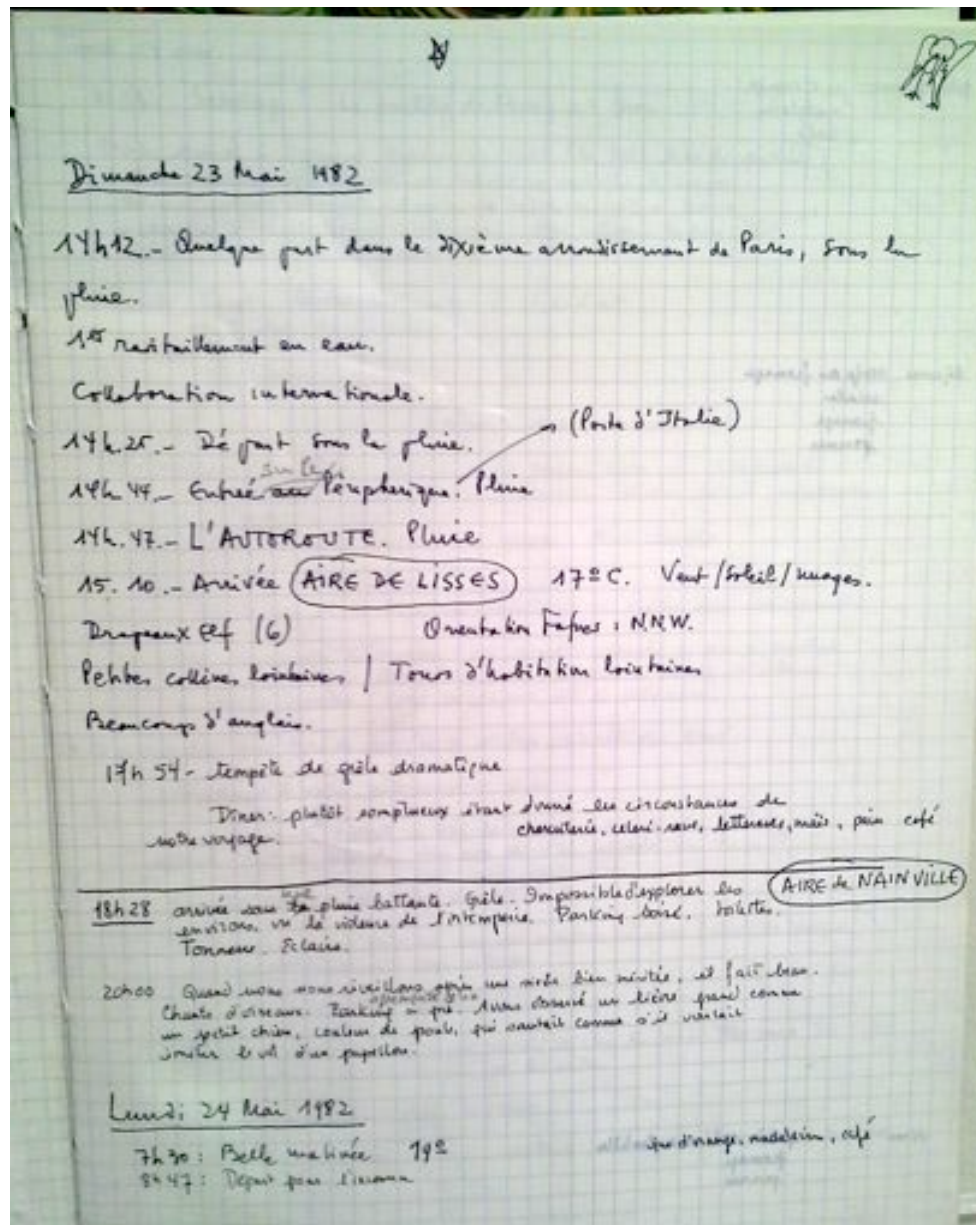 Dimanche 23 Mai 1982
14h12.- Quelque part dans le dixième arrondissement de Paris, sous la
pluie.
1er ravitaillement en eau.
Collaboration internationale.
(Porte d'Italie)
14h.25.- Départ sous la pluie.
sur le
14h.44.- Entrée au Péripherique. Pluie
14h.47.- L'AUTOROUTE. Pluie
15.10.- Arrivée AIRE DE LISSES 17º C. Vent/Soleil/nuages.
Drapeaux Elf (6) Orientation Fafner: N.N.W.
Petites collines lointaines / Tours d'habitation lointaines
Beaucoup d'anglais.
17h 54- tempête de grêle dramatique
Dîner: plutôt somptueux étant donné les circonstances de
notre voyage. charcuterie, céleri-rave, betteraves, maïs, pain café
AIRE de NAINVILLE
18h28 arrivée sous une pluie battante. Grêle. Impossible d'explorer les
environs, vu la violence de l'intempérie. Parking boisé. toilettes.
Tonnerre. Eclairs.
20h00 Quand nous nous réveillons après une sieste bien méritée, il fait beau.
Chants d'oiseaux. Parking. Avons observé un lièvre grand comme
un petit chien, couleur de, qui sautait comme s'il voulait
imiter le vol d'un papillon.
Lundi 24 Mai 1982
7h30: Belle matinée 19º jus d'orange, madeleines, café
8h47: Départ pour l'inconnu